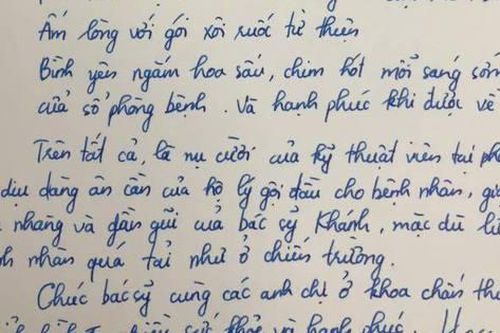 Ấm lòng với gói xôi ruốc từ thiện
Bình yên ngắm hoa sấu, chim hót mỗi sáng sớm
cửa sổ phòng bệnh. Và hạnh phúc khi được về
Trên tất cả, là nụ cười của kỹ thuật viên tại
dịu dàng ân cần của hộ lý gội đầu cho bệnh nhân,
nhàng và gần gũi của bác sỹ Khánh, mặc dù
nhân quá tải như ở chiến trường.
Chúc bác sỹ cùng các anh chị ở khoa chấn
sức khỏe và hạnh phúc.